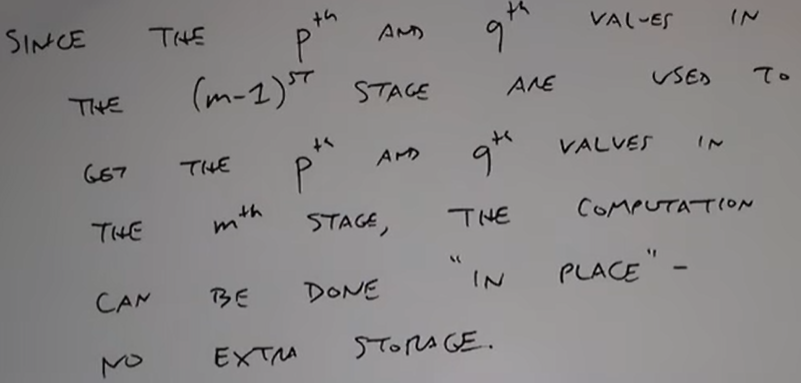 SINCE THE pᵗʰ AND qᵗʰ VALUES IN
THE (m-1)ˢᵀ STAGE ARE USED TO
GET THE pᵗʰ AND qᵗʰ VALUES IN
THE mᵗʰ STAGE, THE COMPUTATION
CAN BE DONE "IN PLACE" -
NO EXTRA STORAGE.